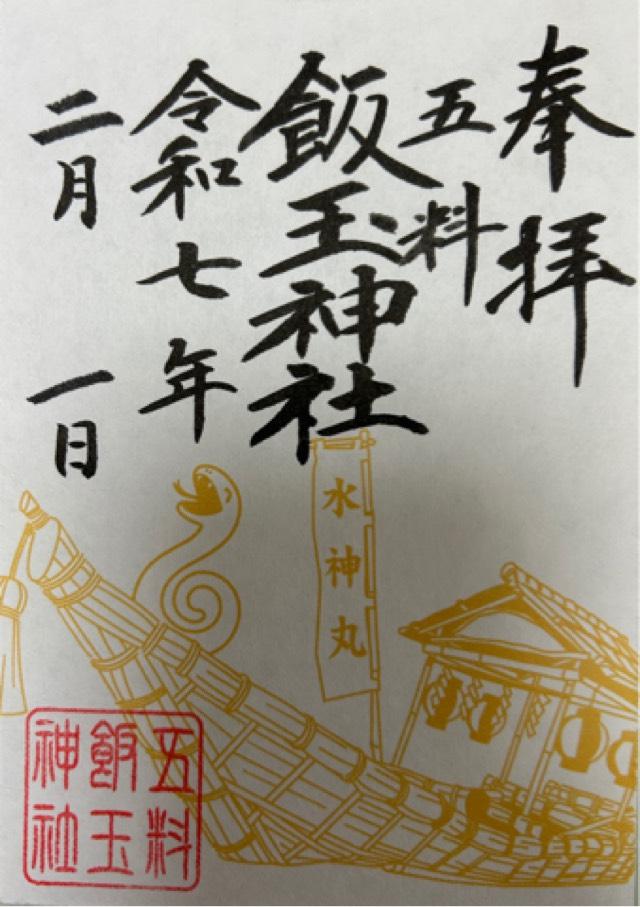 奉拝
五料
飯玉神社
令和七年
二月一日
水神丸
五料
飯玉
神社